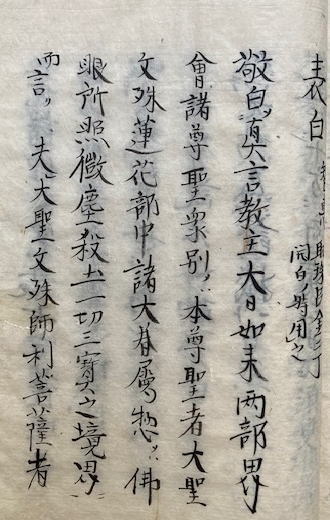 表白
開白ノ時用之
敬白真言教主大日如来両部界
會諸尊聖衆別ノ本尊聖者大聖
文殊蓮花部中諸大眷属惣ノ佛
眼所照微塵殺土一切三寳之境界
而言 夫大聖文殊師利菩薩者